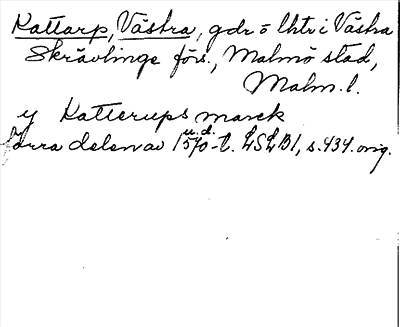 Kattarp, Västra, gdr o lhtr i Västra
Skrävlinge förs., Malmö stad,
Malm. l.
y Katterups marck
u.d.
örra delen av 1570-t. LSLB1, s. 434. orig.